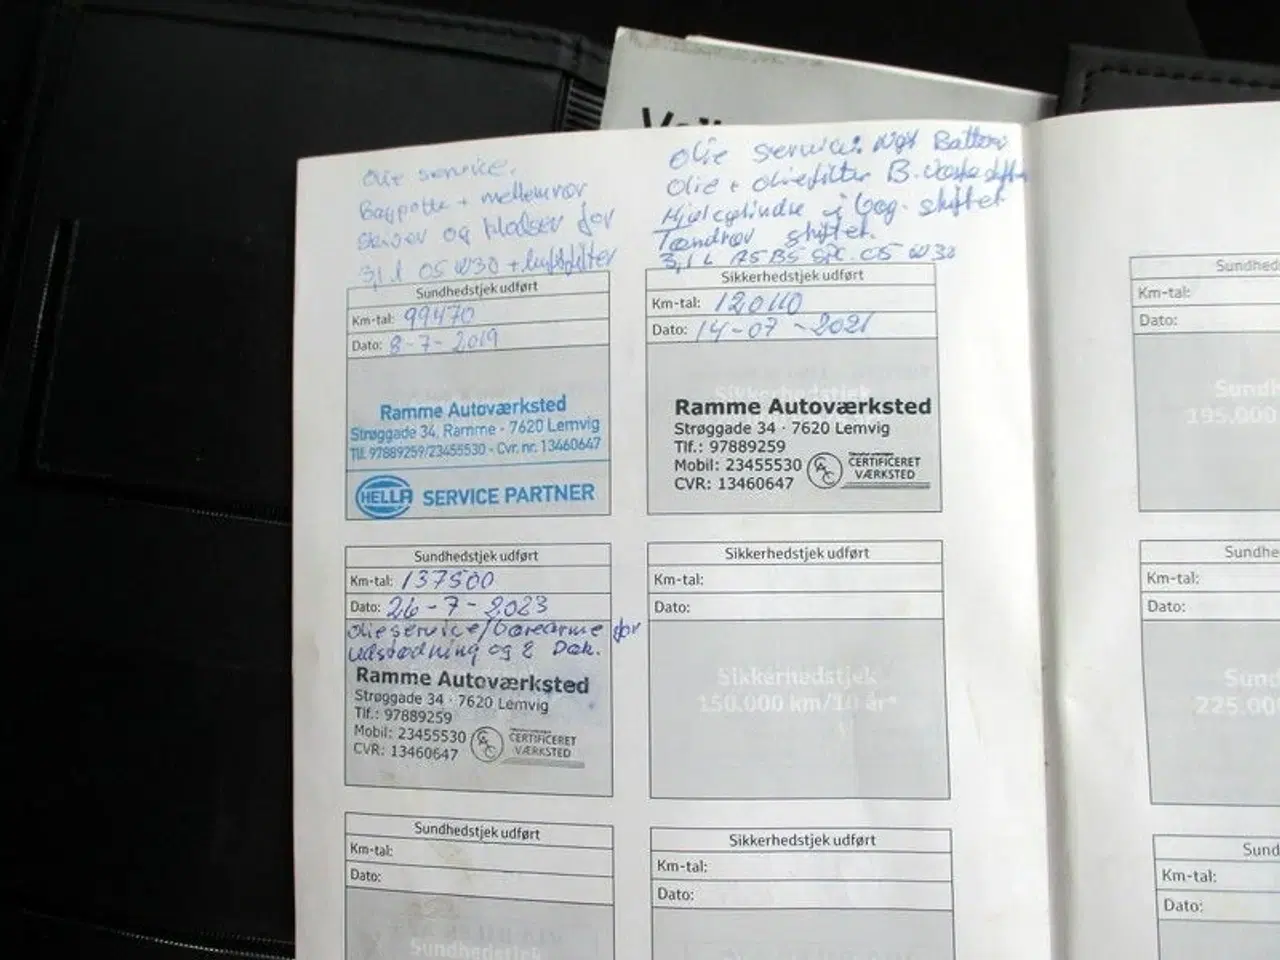 Olie service.
Bagpotte + mellemrør
Skiver og klodser for
3,1 l 05 W30 + luftfilter
Sundhedstjek udført
Km-tal: 99470
Dato: 8-7-2019
Ramme Autoværksted
Strøggade 34, Ramme - 7620 Lemvig
Tlf. 97889259/23455530 - Cvr. nr. 13460647
HELLA SERVICE PARTNER
Olie service: Nyt Batteri
Olie + oliefilter B. væske skiftet
Hjulcylindre i bag. skiftet
Tændrør skiftet.
3,1 L A5 B5 05 W 30
Sikkerhedstjek udført
Km-tal: 120110
Dato: 14-07-2021
Sikkerhedstjek
Ramme Autoværksted
Strøggade 34 · 7620 Lemvig
Tlf.: 97889259
Mobil: 23455530
CVR: 13460647
CERTIFICERET
VÆRKSTED
Sundhedstjek udført
Km-tal: 137500
Dato: 26-7-2023
olieservice/bærearme for
udstødning og 2 Dæk.
Ramme Autoværksted
Strøggade 34 · 7620 Lemvig
Tlf.: 97889259
Mobil: 23455530
CVR: 13460647
CERTIFICERET
VÆRKSTED
Sikkerhedstjek udført
Km-tal:
Dato:
Sikkerhedstjek
150.000 km/10 år*
Sundhedstjek udført
Km-tal:
Dato:
Sundhedstjek
Sikkerhedstjek udført
Km-tal:
Dato:
Sundhed
Km-tal:
Dato:
Sundh
195.000
Sundhe
Km-tal:
Dato:
Sund
225.00
Sund
Km-tal:
Dato: